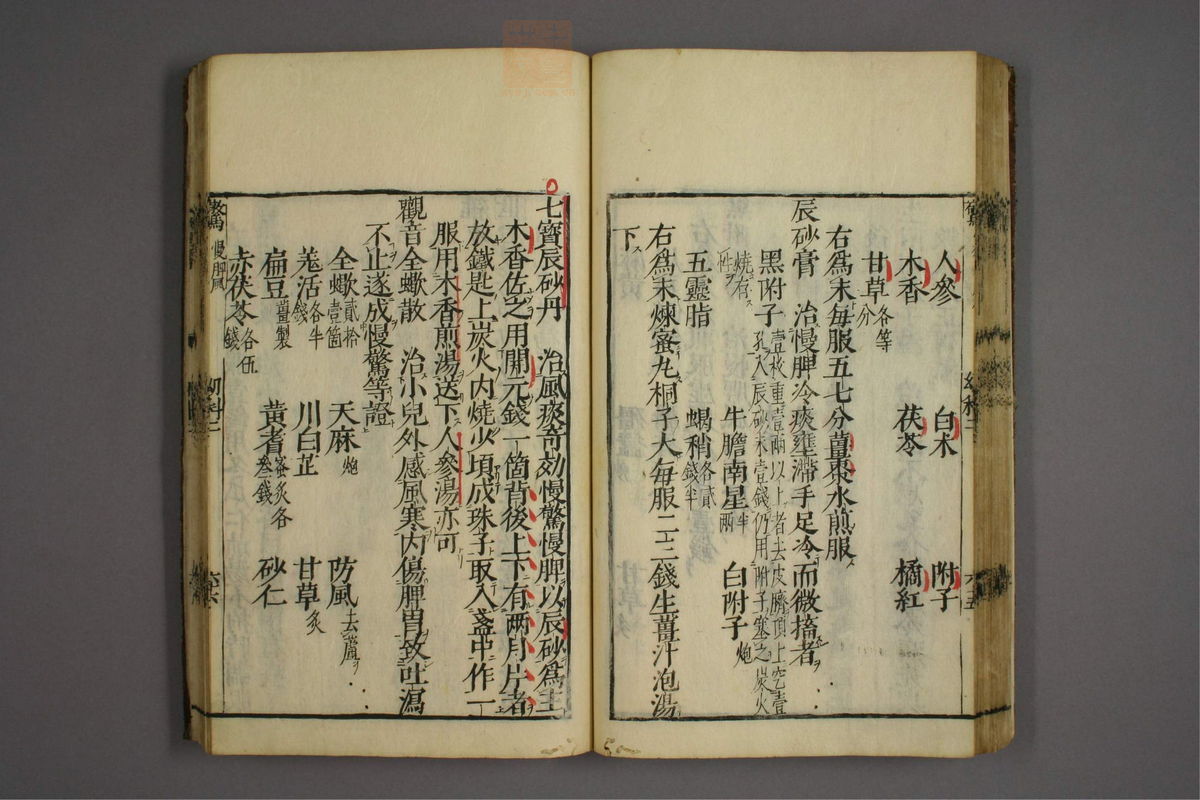 人參 白朮 附子
木香 茯苓 橘紅
甘草各等分
右爲末每服五七分薑棗水煎服
辰砂膏 治慢脾冷痰壅滯手足冷而微搐者
黑附子壹枚重壹兩以上者去皮臍頂上空壹孔入辰砂末壹錢仍用附子塞之炭火燒存性 牛膽南星半兩 白附子炮
五靈脂 蝎稍各貳錢半
右爲末煉蜜丸桐子大每服二三錢生薑汁泡湯
下
七寶辰砂丹 治風痰奇效慢驚慢脾以辰砂爲主
木香佐之用開元錢一箇背後上下有兩月片者
放鐵匙上炭火內燒少頃成珠子取入盞中作一
服用木香煎湯送下人參湯亦可
觀音全蠍散 治小兒外感風寒內傷脾胃致吐瀉
不止遂成慢驚等證
全蠍貳拾壹箇 天麻炮 防風去蘆
羗活各半錢 川白芷 甘草炙
扁豆薑製 黃耆蜜炙各叁錢 砂仁
赤茯苓各伍錢
驚 慢脾風 幼科二